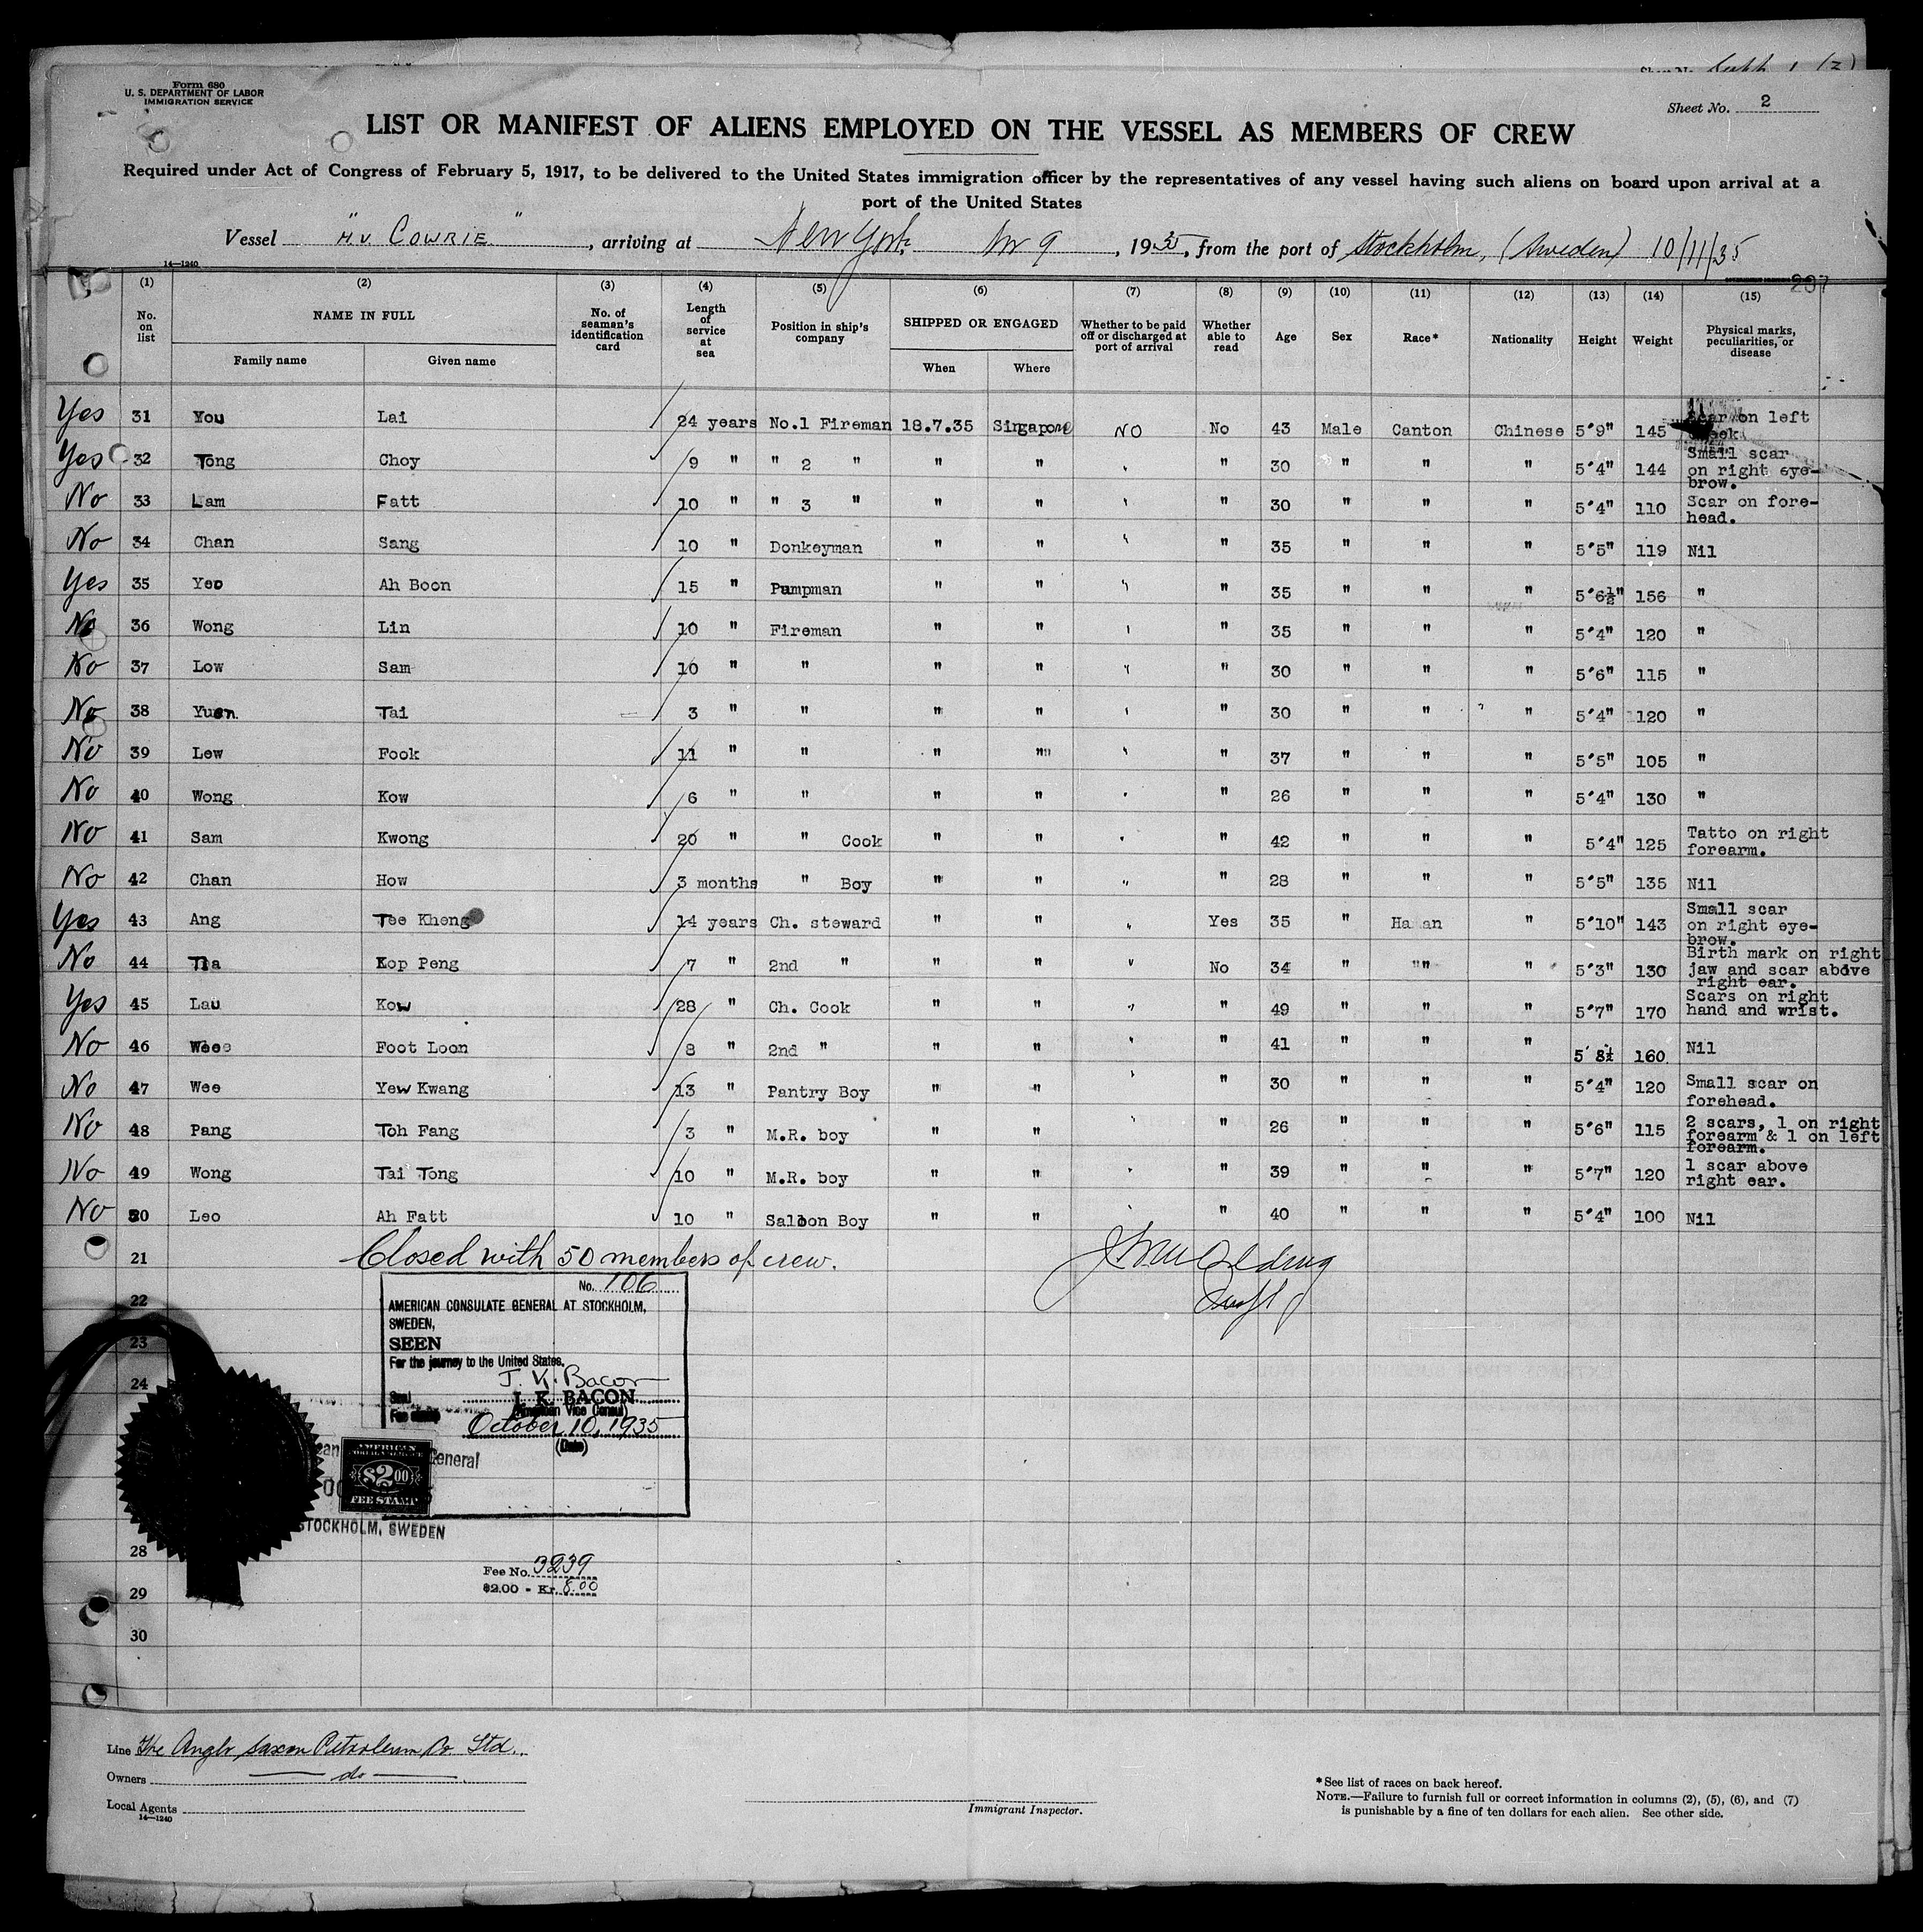 Form 680
U. S. DEPARTMENT OF LABOR
IMMIGRATION SERVICE
Sheet No. 2
LIST OR MANIFEST OF ALIENS EMPLOYED ON THE VESSEL AS MEMBERS OF CREW
Required under Act of Congress of February 5, 1917, to be delivered to the United States immigration officer by the representatives of any vessel having such aliens on board upon arrival at a
port of the United States
Vessel "M.V. COWRIE", arriving at New York, 9, 1935, from the port of Stockholm, (Sweden) 10/11/35
14—1240
237
(1) (2) (3) (4) (5) (6) (7) (8) (9) (10) (11) (12) (13) (14) (15)
No. on list
NAME IN FULL
Family name Given name
No. of seaman's identification card
Length of service at sea
Position in ship's company
SHIPPED OR ENGAGED
When Where
Whether to be paid off or discharged at port of arrival
Whether able to read
Age Sex Race* Nationality Height Weight
Physical marks, peculiarities, or disease
Yes 31 You Lai 24 years No.1 Fireman 18.7.35 Singapore NO No 43 Male Canton Chinese 5'9" 145 Scar on left cheek
Yes 32 Tong Choy 9 " " 2 " " " " " 30 " " " 5'4" 144 Small scar on right eye-brow.
No 33 Lam Fatt 10 " " 3 " " " " " 30 " " " 5'4" 110 Scar on fore-head.
No 34 Chan Sang 10 " Donkeyman " " " " 35 " " " 5'5" 119 Nil
Yes 35 Yeo Ah Boon 15 " Pumpman " " " " 35 " " " 5'6½" 156 "
No 36 Wong Lin 10 " Fireman " " " " 35 " " " 5'4" 120 "
No 37 Low Sam 10 " " " " " " 30 " " " 5'6" 115 "
No 38 Yuen Tai 3 " " " " " " 30 " " " 5'4" 120 "
No 39 Lew Fook 11 " " " " " " 37 " " " 5'5" 105 "
No 40 Wong Kow 6 " " " " " " 26 " " " 5'4" 130 "
No 41 Sam Kwong 20 " " Cook " " " " 42 " " " 5'4" 125 Tatto on right forearm.
No 42 Chan How 3 months " Boy " " " " 28 " " " 5'5" 135 Nil
Yes 43 Ang Tee Kheng 14 years Ch. steward " " " Yes 35 " " 5'10" 143 Small scar on right eye-brow.
No 44 Kop Peng 7 " 2nd " " " " No 34 " " " 5'3" 130 Birth mark on right jaw and scar above right ear.
Yes 45 Lau Kow 28 " Ch. Cook " " " " 49 " " " 5'7" 170 Scars on right hand and wrist.
No 46 Foot Loon 8 " 2nd " " " " " 41 " " " 5'8½ 160 Nil
No 47 Wee Yew Kwang 13 " Pantry Boy " " " " 30 " " " 5'4" 120 Small scar on forehead.
No 48 Pang Toh Fang 3 " M.R. boy " " " " 26 " " " 5'6" 115 2 scars, 1 on right forearm & 1 on left forearm.
No 49 Wong Tai Tong 10 " M.R. boy " " " " 39 " " " 5'7" 120 1 scar above right ear.
No 50 Leo Ah Fatt 10 " Saloon Boy " " " " 40 " " " 5'4" 100 Nil
21 Closed with 50 members of crew.
22
23
24
28
29
30
No. 106
AMERICAN CONSULATE GENERAL AT STOCKHOLM,
SWEDEN,
SEEN
For the journey to the United States.
J. K. Bacon
J. K. BACON
(American Vice Consul)
October 10, 1935
(Date)
General
AMERICAN
$2.00
FEE STAMP
STOCKHOLM, SWEDEN
Fee No. 3239
$2.00 - Kr. 8.00
Line The Anglo Saxon Petroleum Co. Ltd.
Owners — do —
Local Agents
14—1240
Immigrant Inspector.
*See list of races on back hereof.
NOTE.—Failure to furnish full or correct information in columns (2), (5), (6), and (7)
is punishable by a fine of ten dollars for each alien. See other side.